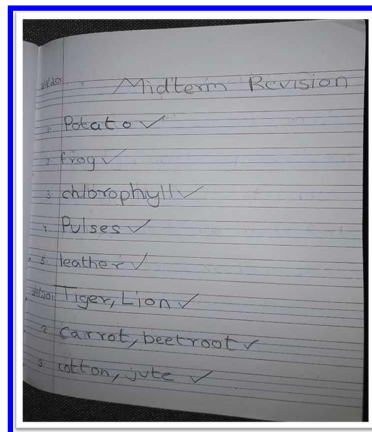 Midterm Revision
1. Potato ✓
2. frog ✓
3. chlorophyll ✓
4. Pulses ✓
5. leather ✓
Tiger, Lion ✓
2. Carrot, beetroot ✓
3. cotton, jute ✓